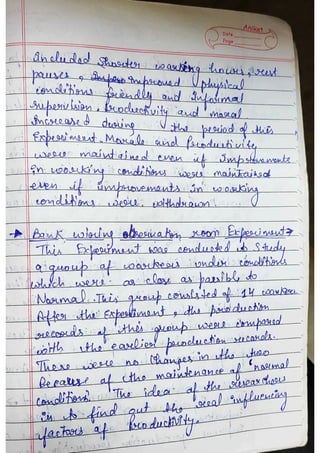 Aniket
Date
Page
included shorter working hours, rest
pauses, improved physical
conditions friendly and Informal
supervision, Productivity and moral
Increased during the period of this
Experiment. Morale and Productivity
were maintained even if Improvements
in working conditions were maintained
even if improvements in working
conditions were withdrawn.
→ Bank wiring observation room Experiment →
This Experiment was conducted to study
a group of workers under conditions
which were as close as possible to
Normal. This group consisted of 14 workers
After the Experiment, the production
records of this group were compared
with the earlier production records.
There were no Changes in the two
Because of the maintenance of 'normal
conditions. The idea of the researchers
is to find out the real influencing
factors of Productivity.